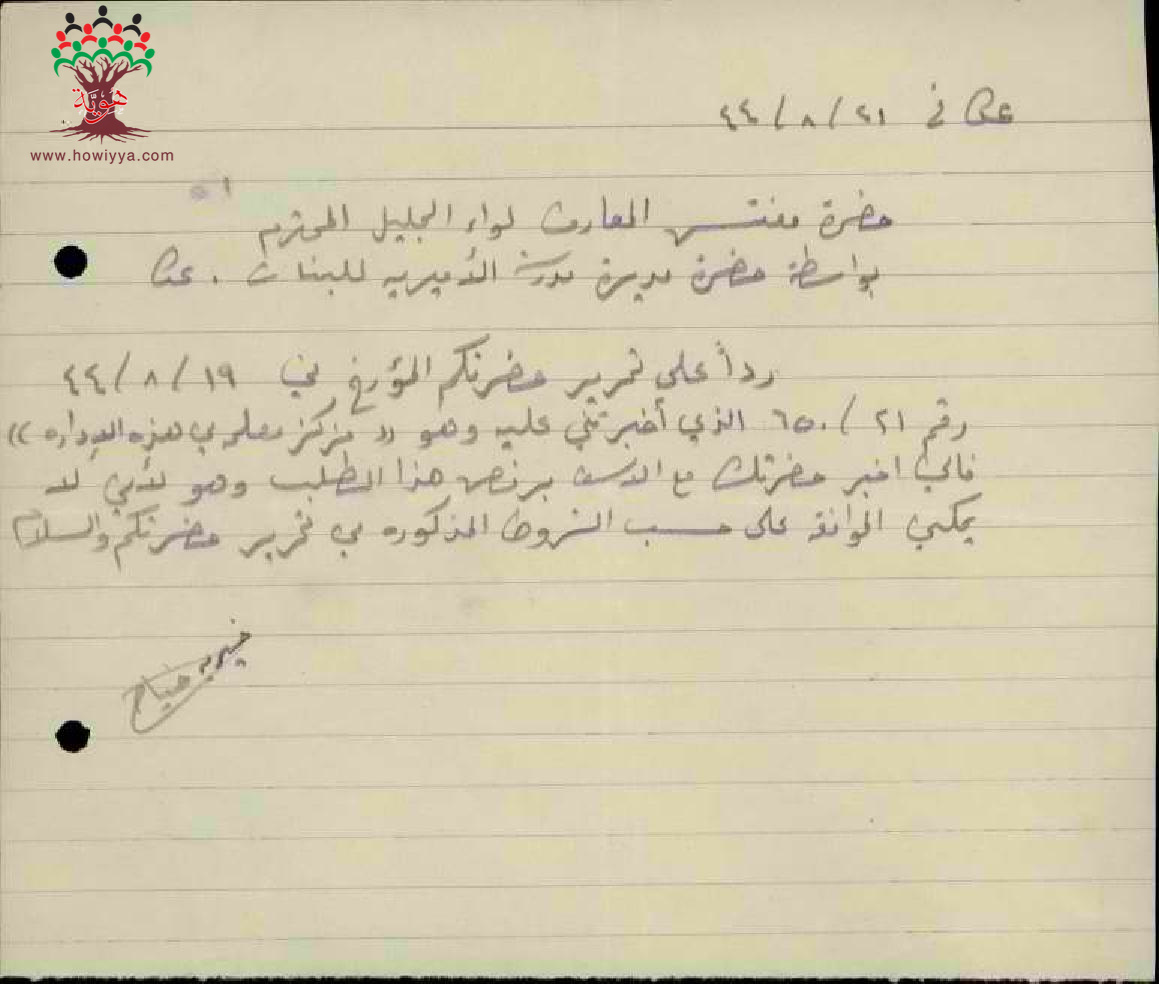 هوية
www.howiyya.com
عكا في ٢١ / ٨ / ٤٤
حضرة مفتش المعارف لواء الجليل المحترم
بواسطة حضرة مديرة مدرسة الأميريه للبنات . عكا
رداً على تحرير حضرتكم المؤرخ في ١٩ / ٨ / ٤٤
رقم ٢١ / ٦٥٠ الذي أخبرتني عليه وهو (( مركز معلمه في هذه الإداره ))
فاني اخبر حضرتك مع الاسف برفض هذا الطلب وهو لأني لا
يمكنني الموافقة على حسب الشروط المذكوره في تحرير حضرتكم والسلام
خيريه صباح